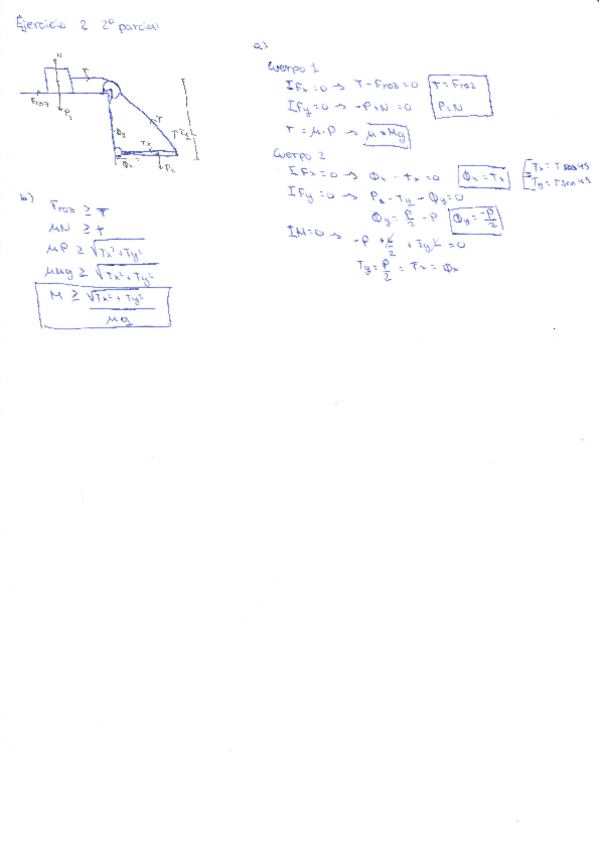 Ejercicio 2 2º parcial
N
T
Froz
P1
T
Ty
L
Tx
Φy
Φx
P2
a)
Cuerpo 1
ΣFx=0 → T-Froz=0 T=Froz
ΣFy=0 → -P+N=0 P=N
T=μ.P → μ*Mg
Cuerpo 2
ΣFx=0 → Φx-Tx=0 Φx=Tx
Tx=T sen45
Ty=T sen45
ΣFy=0 → P2-Ty-Φy=0
Φy=P/2-P Φy=-P/2
ΣM=0 → -P*L/2+TyL=0
Ty=P/2=Tx=Φx
b)
Froz ≥ T
μN ≥ T
μP ≥ √Tx²+Ty²
μMg ≥ √Tx²+Ty²
M ≥ √Tx²+Ty²
μg